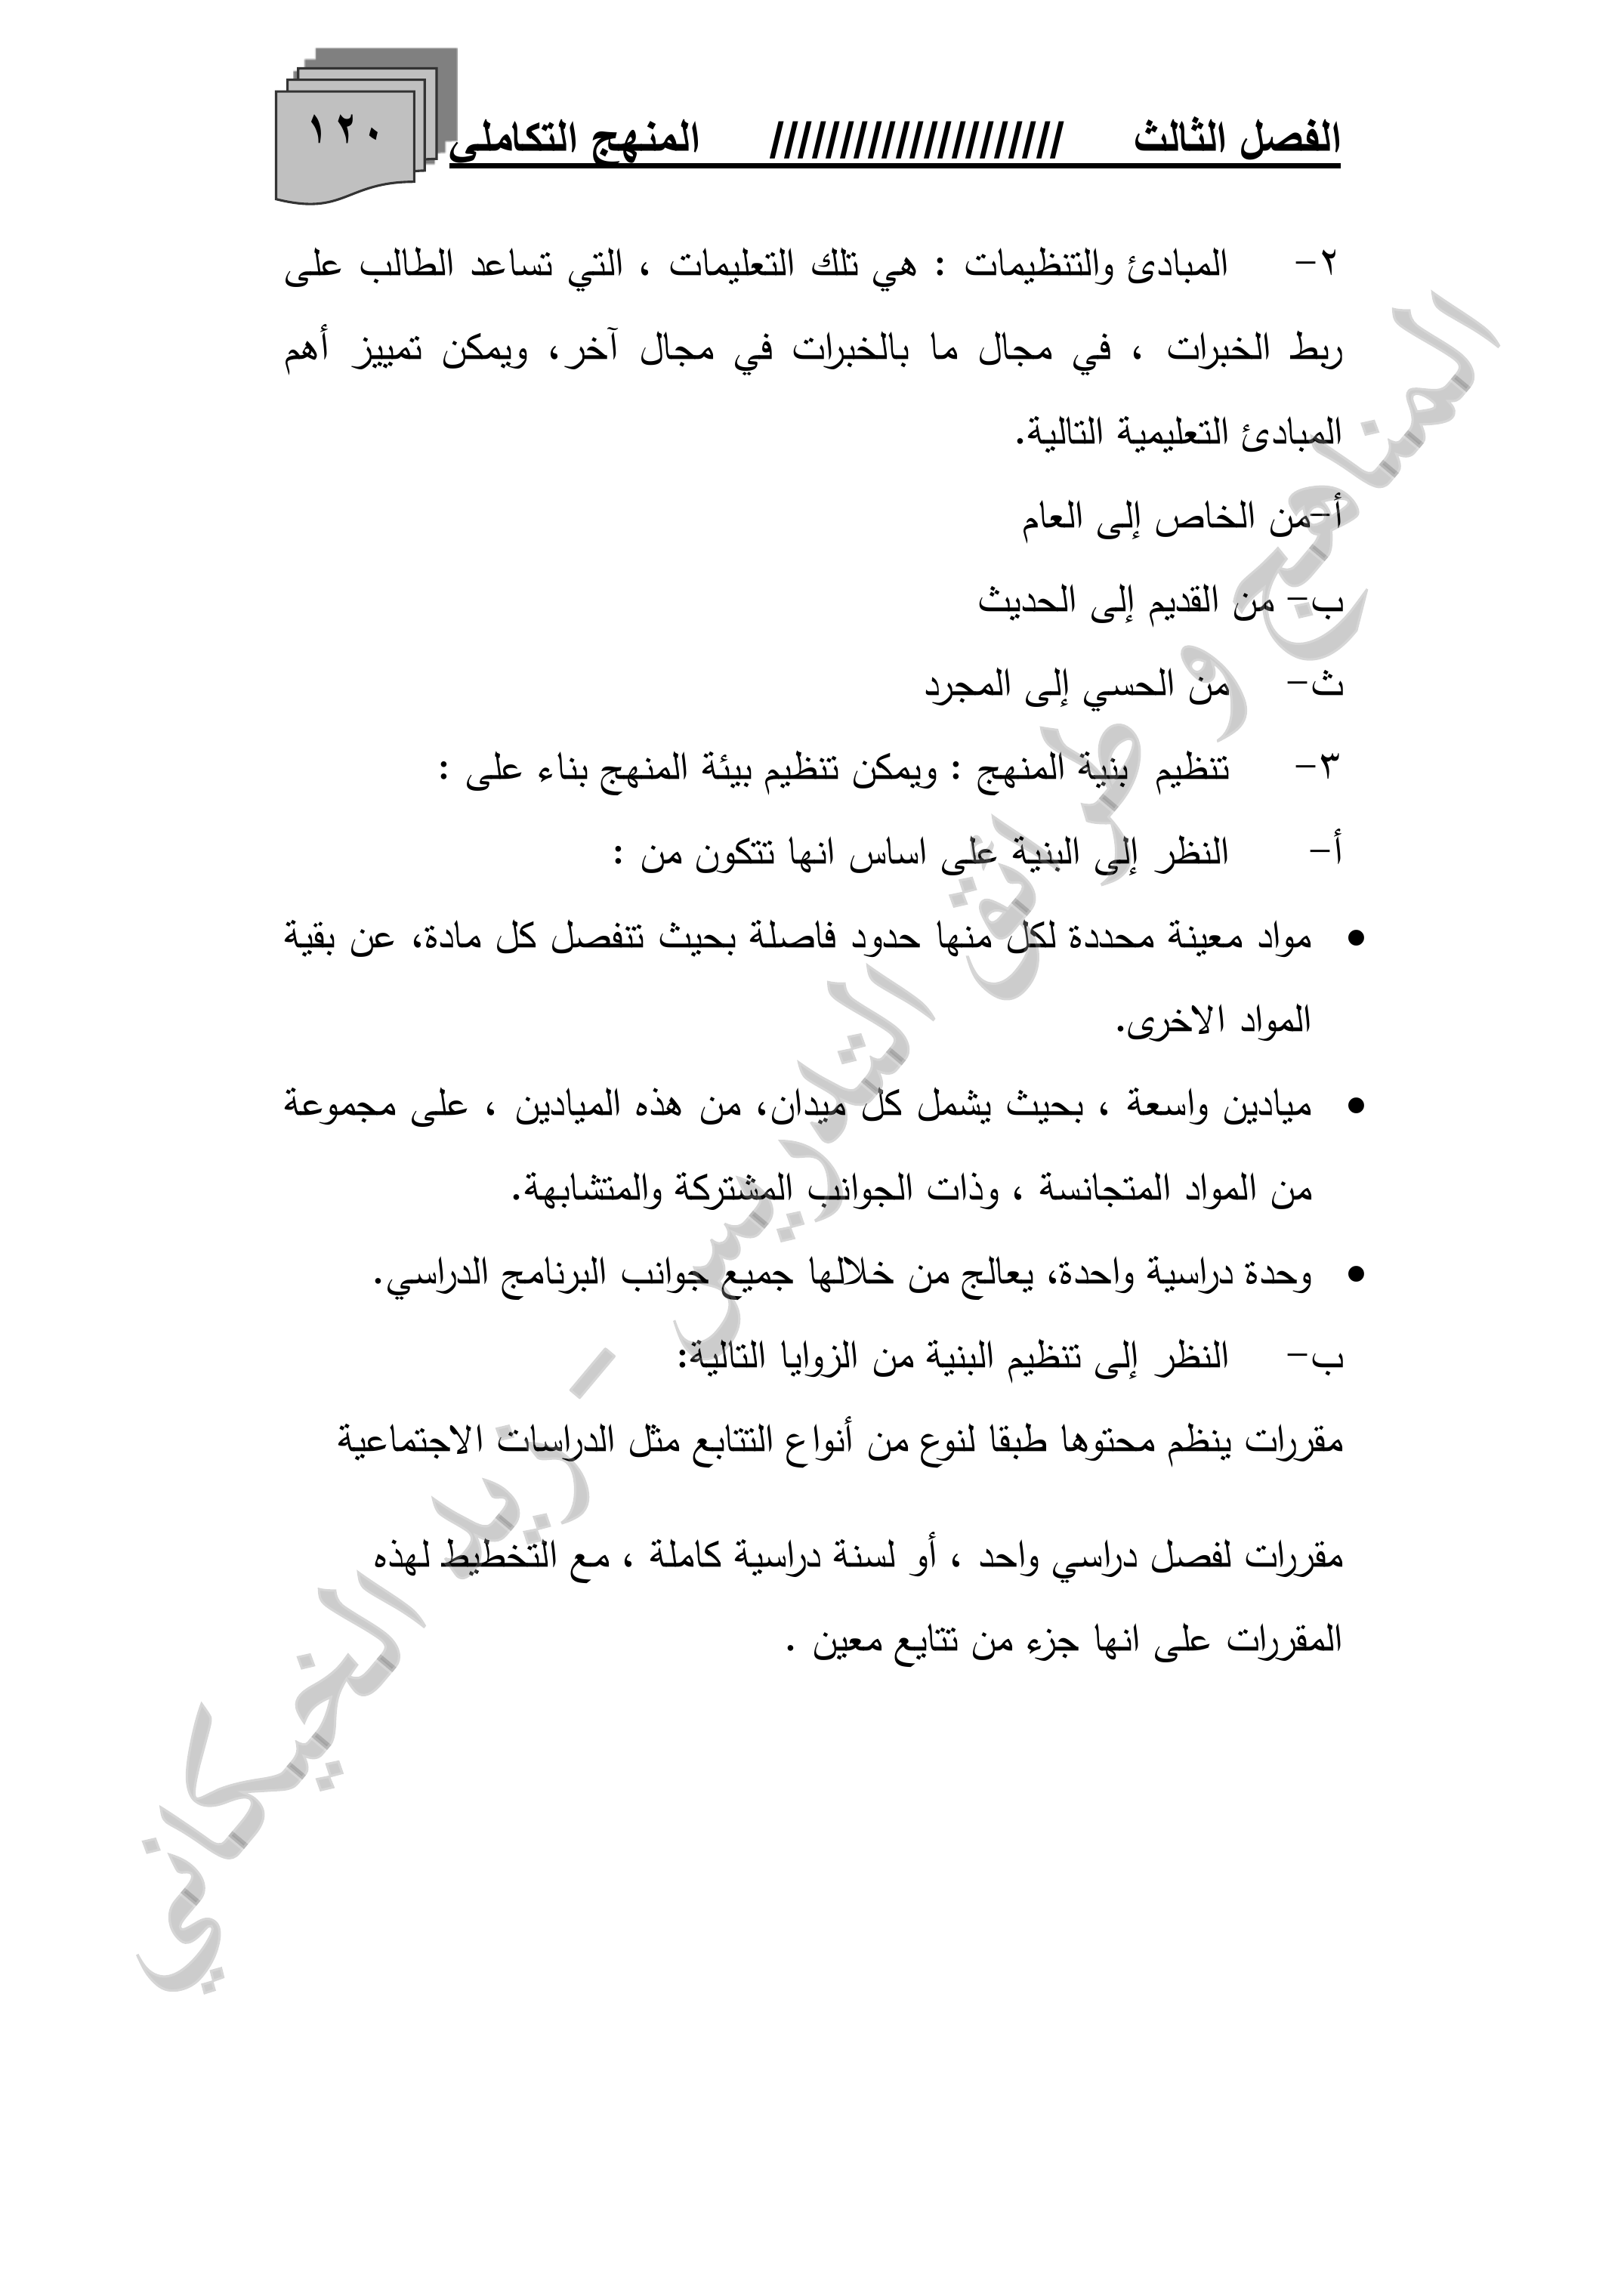 الفصل الثالث ///////////////////// المنهج التكاملي ١٢٠
٢- المبادئ والتنظيمات : هي تلك التعليمات ، التي تساعد الطالب على
ربط الخبرات ، في مجال ما بالخبرات في مجال آخر، ويمكن تمييز أهم
المبادئ التعليمية التالية.
أ-من الخاص إلى العام
ب- من القديم إلى الحديث
ث- من الحسي إلى المجرد
٣- تنظيم بنية المنهج : ويمكن تنظيم بيئة المنهج بناء على :
أ- النظر إلى البنية على اساس انها تتكون من :
• مواد معينة محددة لكل منها حدود فاصلة بحيث تتفصل كل مادة، عن بقية
المواد الاخرى.
• ميادين واسعة ، بحيث يشمل كل ميدان، من هذه الميادين ، على مجموعة
من المواد المتجانسة ، وذات الجوانب المشتركة والمتشابهة.
• وحدة دراسية واحدة، يعالج من خلالها جميع جوانب البرنامج الدراسي.
ب- النظر إلى تنظيم البنية من الزوايا التالية:
مقررات ينظم محتوها طبقا لنوع من أنواع التتابع مثل الدراسات الاجتماعية
مقررات لفصل دراسي واحد ، أو لسنة دراسية كاملة ، مع التخطيط لهذه
المقررات على انها جزء من تتايع معين .
المناهج و طرائق التدريس - زيد الخيكاني